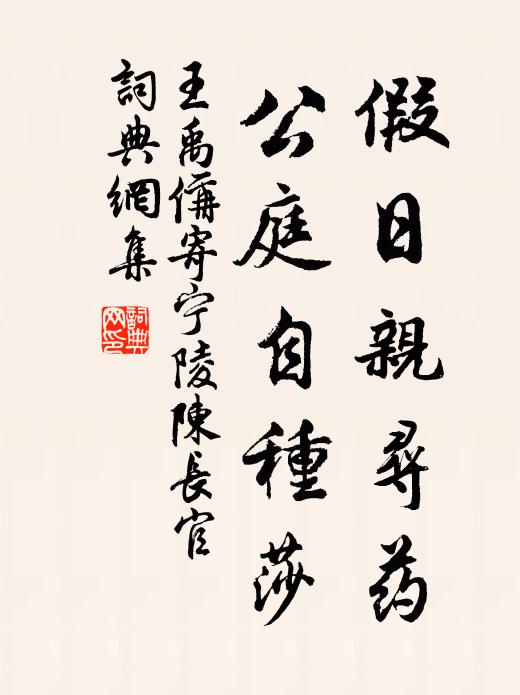 假日親尋药
公庭自種莎
王禹偁寄宁陵陳長官
詞典網集
詞典网印